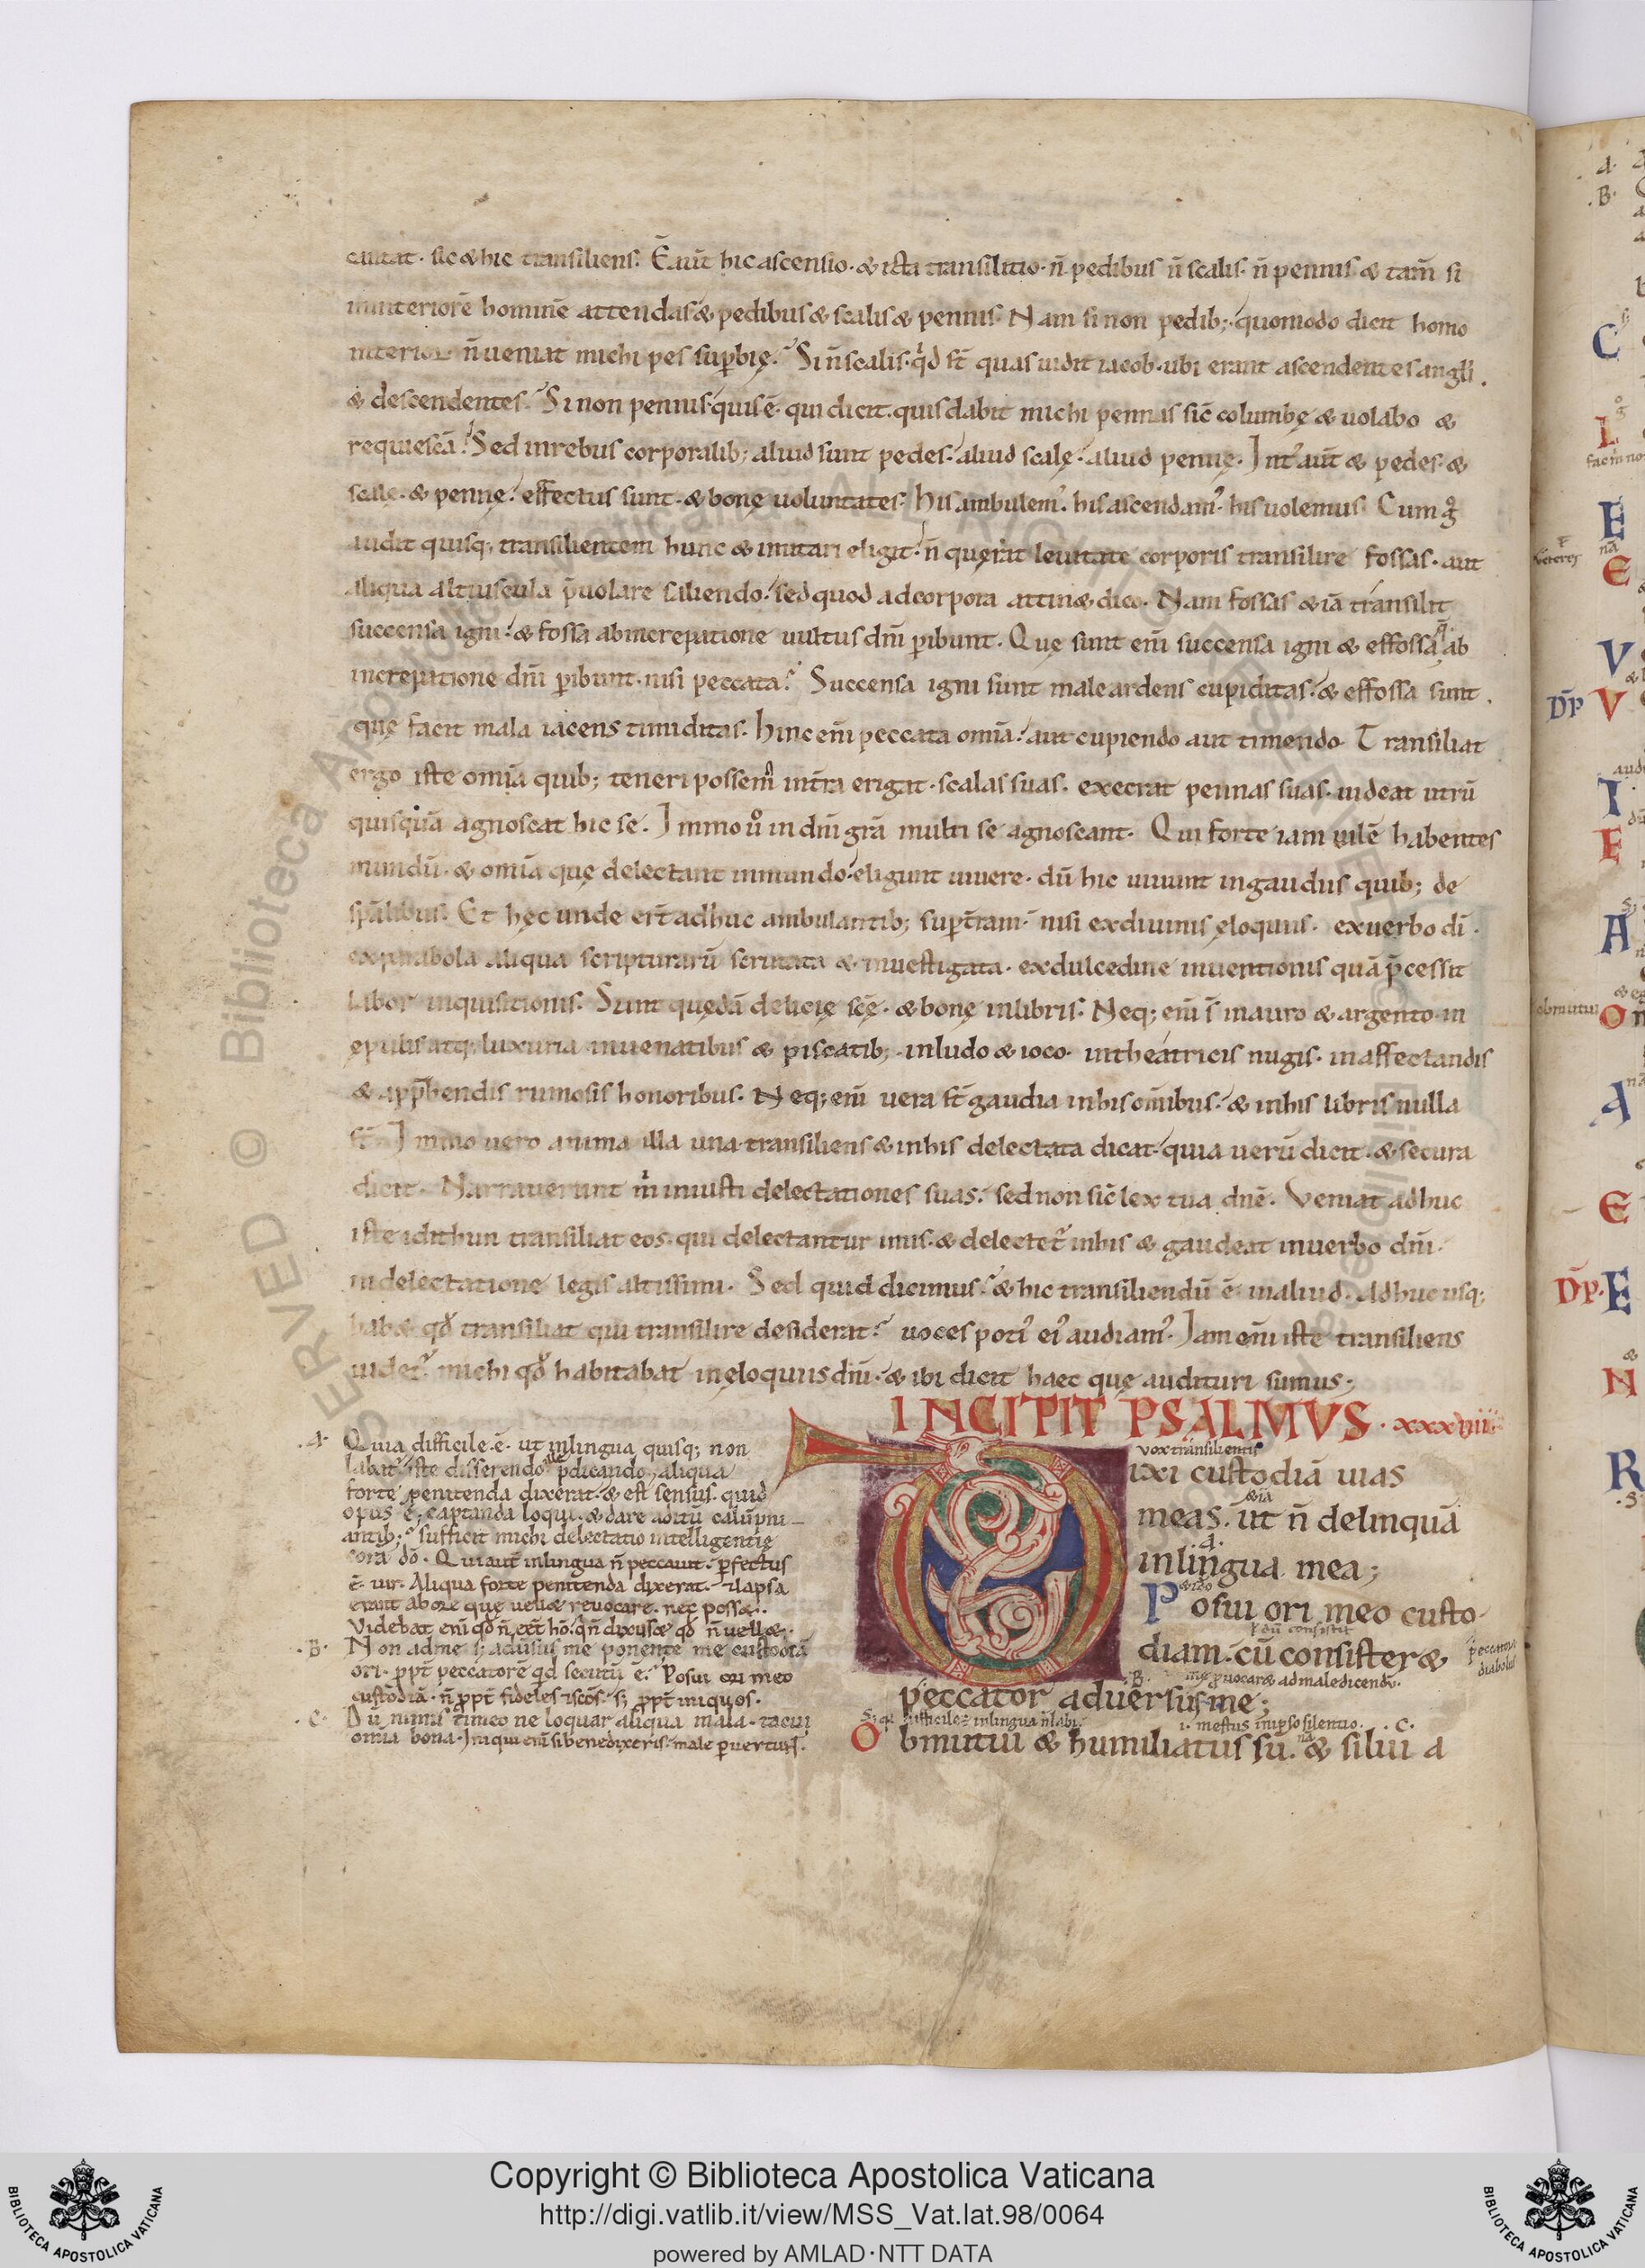 cantat · sic & hic transiliens. Ē aut̄ hic ascensio · & ista transilitio · n̄ pedibus n̄ scalis · n̄ pennis & tam̄ si
in interiorē hominē attendas & pedibus & scalis & pennis. Nam si non pedib; quomodo dicit homo
interior n̄ ueniat michi pes sup̄bię. Si n̄ scalis · qd st̄ quas uidit iacob · ubi erant ascendentes angli
& descendentes. Si non pennis · quis ē · qui dicit · quis dabit michi pennas sic̄ columbę & uolabo &
requiescā. Sed in rebus corporalib; aliud sunt pedes · aliud scalę · aliud pennę. Int' aut̄ & pedes · &
scale · & pennę · effectus sunt · & bonę uoluntates. His ambulem' · his ascendam' · his uolemus. Cum g°
audit quisq; transilientem hunc & imitari eligit · n̄ querat leuitate corporis transilire fossas · aut
aliqua altiuscula p̄uolare saliendo · sed quod ad corpora attin& dico. Nam fossas & iā transilit
succensa igni · & fossa ab increpatione uultus dn̄i p̄ibunt. Quę sunt eni̅ succensa igni & effossa ab
increpatione dn̄i p̄ibunt · nisi peccata. Succensa igni sunt male ardens cupiditas · & effossa sunt
quę facit mala iacens timiditas. Hinc eni̅ peccata omīa · aut cupiendo aut timendo. Transiliat
ergo iste omīa quib; teneri possem̄ int̄ra erigat · scalas suas · exerat pennas suas · uideat utrū
quisquā agnoscat hic se. Immo u° in dn̄i grā multi se agnoscant. Qui forte iam uilē habentes
mundū · & omīa quę delectant in mundo · eligunt uiuere · dū hic uiuunt in gaudiis quib; de
sp̄alibus. Et hęc unde er̄t adhuc ambulantib; sup̄ t̄ram · nisi ex diuinis ęloquiis · ex uerbo di̅ ·
ex parabola aliqua scripturarū scrutata & inuestigata · ex dulcedine inuentionis quā p̄cessit
labor inquisitionis. Sunt quędā delicię scę̄ · & bonę in libris. Neq; eni̅ s̄ in auro & argento · in
epulis atq; luxuria · in uenatibus & piscatib; · in ludo & ioco · in theatricis nugis · in affectandis
& app̄hendis ruinosis honoribus. Neq; eni̅ uera st̄ gaudia in his om̄ibus · & in his libris nulla
st̄. Immo uero anima illa una transiliens & in his delectata dicat · quia uerū dicit · & secura
dicit. Narrauerunt m̄ iniusti delectationes suas · sed non sic̄ lex tua dn̄e. Veniat adhuc
iste idithun transiliat eos · qui delectantur imis · & delectet' in his & gaudeat in uerbo dn̄i ·
in delectatione legis altissimi. Sed quid dicimus · & hic transiliendū ē in aliud. Adhuc usq;
hab& qd̄ transiliat qui transilire desiderat. uoces poti' ei' audiam'. Iam eni̅ iste transiliens
uidet' michi qd̄ habitabat in ęloquiis dn̄i · & ibi dicit haec quę audituri sumus;
INCIPIT PSALMVS · xxxviii
· A · Quia difficile · ē · ut in lingua quisq; non
labat' iste disserendo p̄dicando aliqua
forte penitenda dixerat · & est sensus · quid
opus ē captanda loqui · & dare aditū calūpni
antib; sufficit michi delectatio intelligentię
corā dō · Qui aut̄ in lingua n̄ peccauit · p̄fectus
ē uir. Aliqua forte penitenda dixerat · lapsa
erant ab ore quę uell& reuocare · nec poss&.
· B · Non ad me s; adūsus me ponente me custodiā
ori · pp̄t peccatorē qd secutū ē · Posui ori meo
custodiā · n̄ pp̄t fideles scōs · s; pp̄t iniquos ·
· C · Dū nimis timeo ne loquar aliqua mala · tacui
omīa bona · Iniqui eni̅ si benedixeris male p̄uertun̄t ·
vox transilientis
ixi custodiā uias
meas · ut n̄ delinquā
in lingua mea;
Posui ori meo custo
diam · cū consister&
peccator aduersū me;
Obmutui & humiliatus sū · & silui a
Copyright © Biblioteca Apostolica Vaticana
http://digi.vatlib.it/view/MSS_Vat.lat.98/0064
powered by AMLAD·NTT DATA
BIBLIOTECA APOSTOLICA VATICANA
BIBLIOTECA APOSTOLICA VATICANA